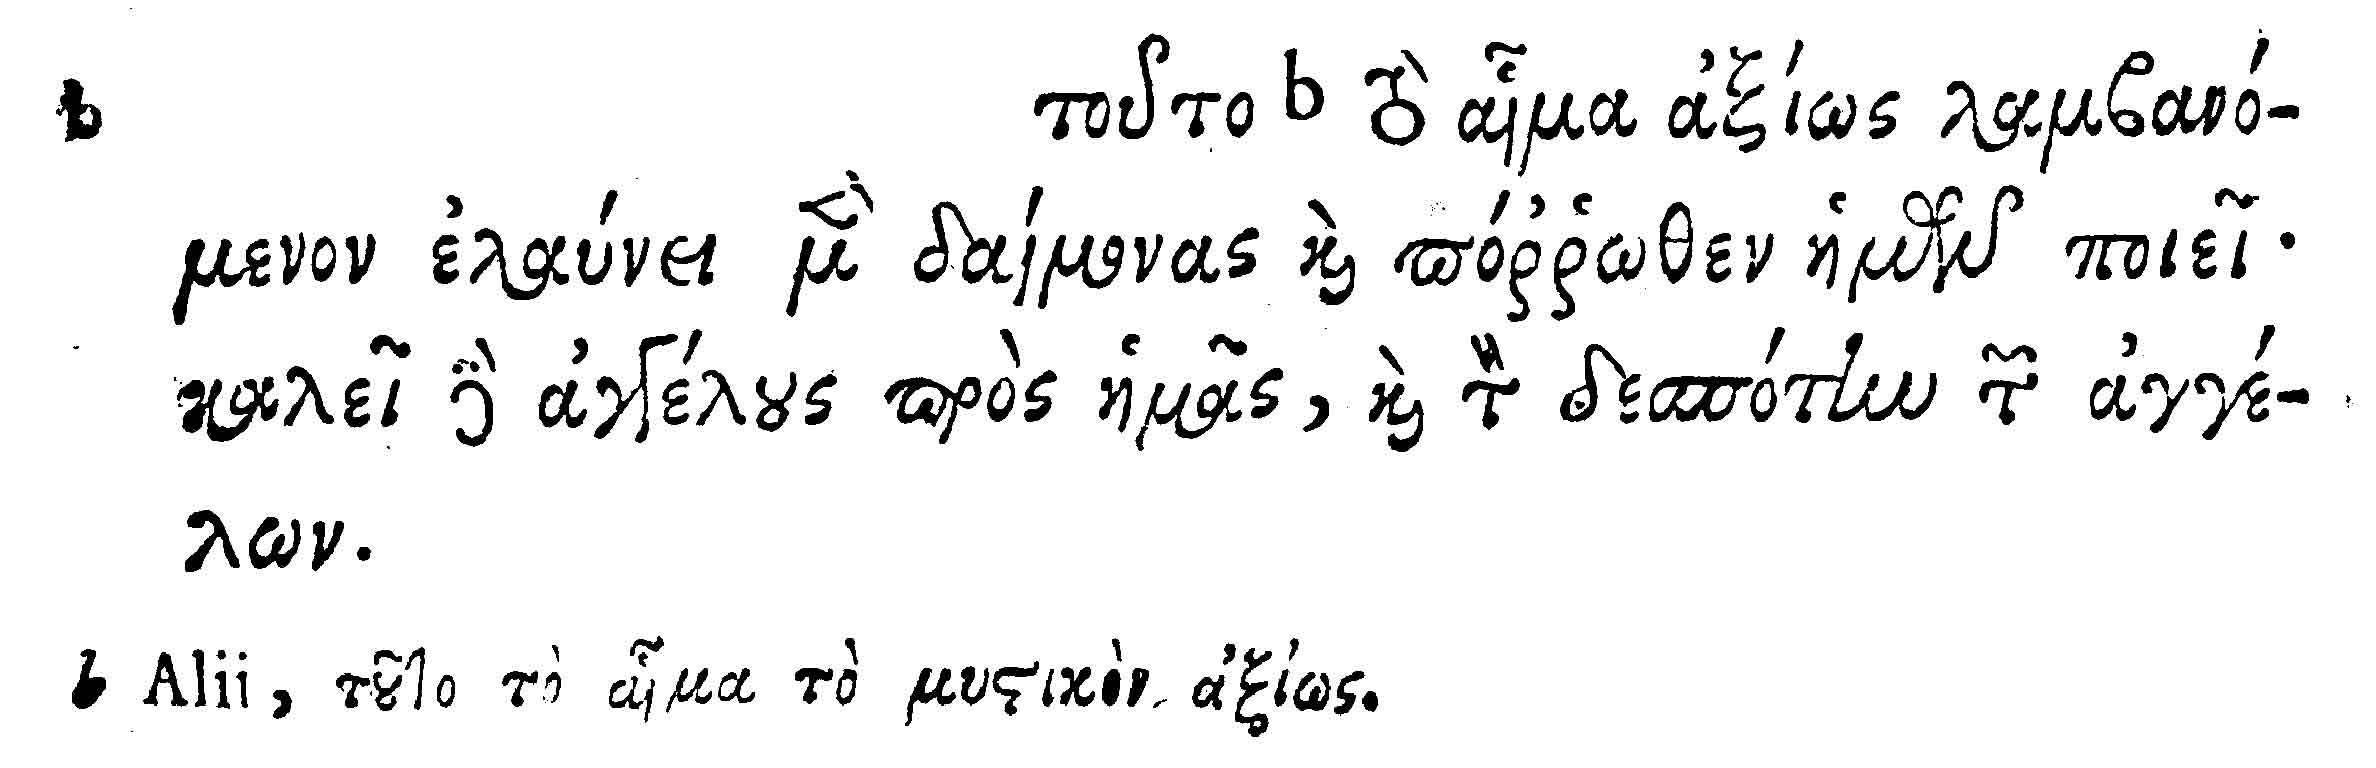 b τοῦτο b τὸ αἷμα ἀξίως λαμβανό-
μενον ἐλαύνει μὲν δαίμονας καὶ πόῤῥωθεν ἡμῶν ποιεῖ·
καλεῖ δὲ ἀγγέλους πρὸς ἡμᾶς, καὶ τὸν δεσπότην τῶν ἀγγέ-
λων.
b Alii, τοῦτο τὸ αἷμα τὸ μυστικὸν ἀξίως.